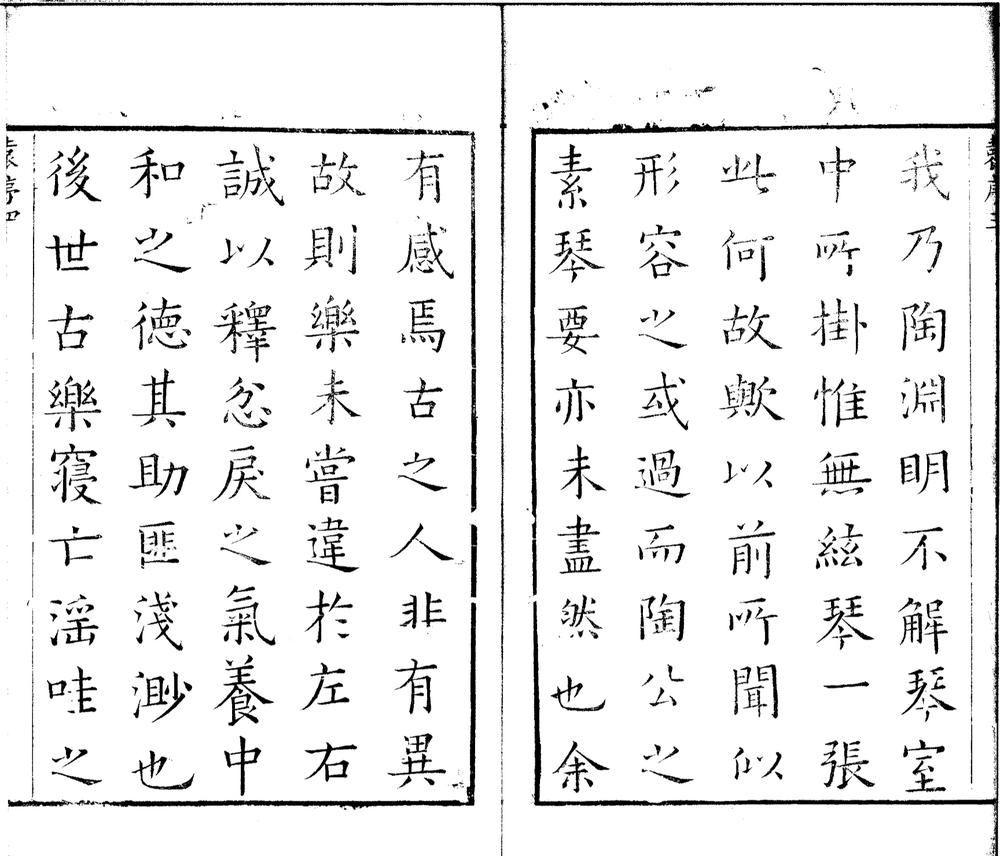 我乃陶淵明不解琴室
中所掛惟無絃琴一張
此何故歟以前所聞似
形容之或過而陶公之
素琴要亦未盡然也余
有感焉古之人非有異
故則樂未嘗違於左右
誠以釋忿戾之氣養中
和之德其助匪淺渺也
後世古樂寖亡淫哇之